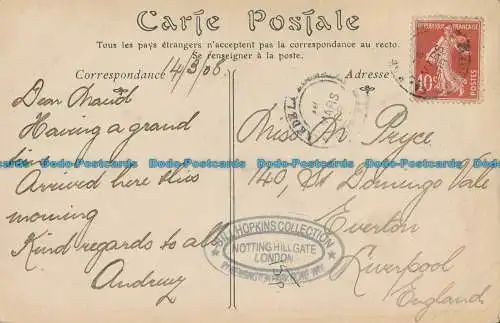 Carte Postale
Tous les pays étrangers n'acceptent pas la correspondance au recto.
Se renseigner à la poste.
Correspondance
14/3/08.
Adresse
RÉPUBLIQUE FRANÇAISE
10c
POSTES
MARS
Dear Maud
Having a grand
time
Arrived here this
morning
Kind regards to all
Andrew
Miss M. Pryce.
140, St Domingo Vale
Everton
Liverpool
England
BILL HOPKINS COLLECTION
NOTTING HILL GATE
LONDON
Dodo-Postcards Dodo-Postcards Dodo-Postcards Dodo-Postcards Dodo-Postcards